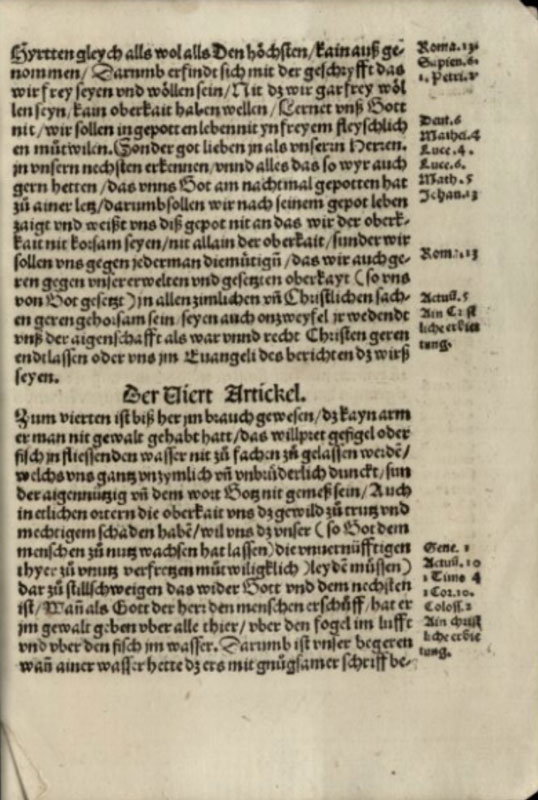 Hyrtten gleych alls wol alls Den höchsten / kain auß ge-
nommen / Darumb erfindt sich mit der geschryfft das
wir frey seyen vnd wöllen sein / Nit dz wir gar frey wöl
len seyn / kain oberkait haben wellen / Lernet vnß Gott
nit / wir sollen in gepotten leben nit yn freyem fleyschlich
en mütwilen. Sonder got lieben jn als vnserin Herren.
jn vnsern nechsten erkennen / vnnd alles das so wyr auch
gern hetten / das vnns Got am nachtmal gepotten hat
zů ainer letz / darumb sollen wir nach seinem gepot leben
zaigt vnd weißt vns diß gepot nit an das wir der oberk-
kait nit korsam seyen / nit allain der oberkait / sunder wir
sollen vns gegen jederman diemütign̄ / das wir auch ge-
ren gegen vnser erwelten vnd gesetzten oberkayt ( so vns
von Got gesetzt ) jn allen zimlichen vn̄ Christlichen sach-
en geren gehorsam sein / seyen auch onzweyfel jr wedendt
vnß der aigenschafft als war vnnd recht Christen geren
endtlassen oder vns jm Euangeli des berichten dz wirß
seyen.
Der Viert Artickel.
Zum vierten ist biß her jm brauch gewesen / dz kayn arm
er man nit gewalt gehabt hatt / das willpret gefigel oder
fisch jn fliessenden wasser nit zů fachen zů gelassen werdē /
welchs vns gantz vnzymlich vn̄ vnbrüderlich dunckt / sun
der aigennützig vn̄ dem wort Gotz nit gemeß sein / Auch
in etlichen ortern die oberkait vns dz gewild zů trutz vnd
mechtigem schaden habē / wil vns dz vnser ( so Got dem
menschen zů nutz wachsen hat lassen ) die vnuernüfftigen
thyer zů vnutz verfretzen můtwiligklich ) leydē müssen )
dar zů stillschweigen das wider Gott vnd dem nechsten
ist / Wan̄ als Gott der herr den menschen erschůff / hat er
jm gewalt geben vber alle thier / vber den fogel im lufft
vnd vber den fisch jm wasser. Darumb ist vnser begeren
wan̄ ainer wasser hette dz ers mit gnůgsamer schrifft be-
Roma. 13.
Sapien. 6.
1. Petri. 2
Deut. 6
Mathei. 4
Luce. 4.
Luce. 6.
Math. 5
Johan. 13
Rom. 13
Actuū. 5
Ain Crist
liche erbie
tung.
Gene. 1
Actuū. 10
1 Timo 4
1 Cor. 10.
Coloss. 2
Ain christ
liche erbie
tung.